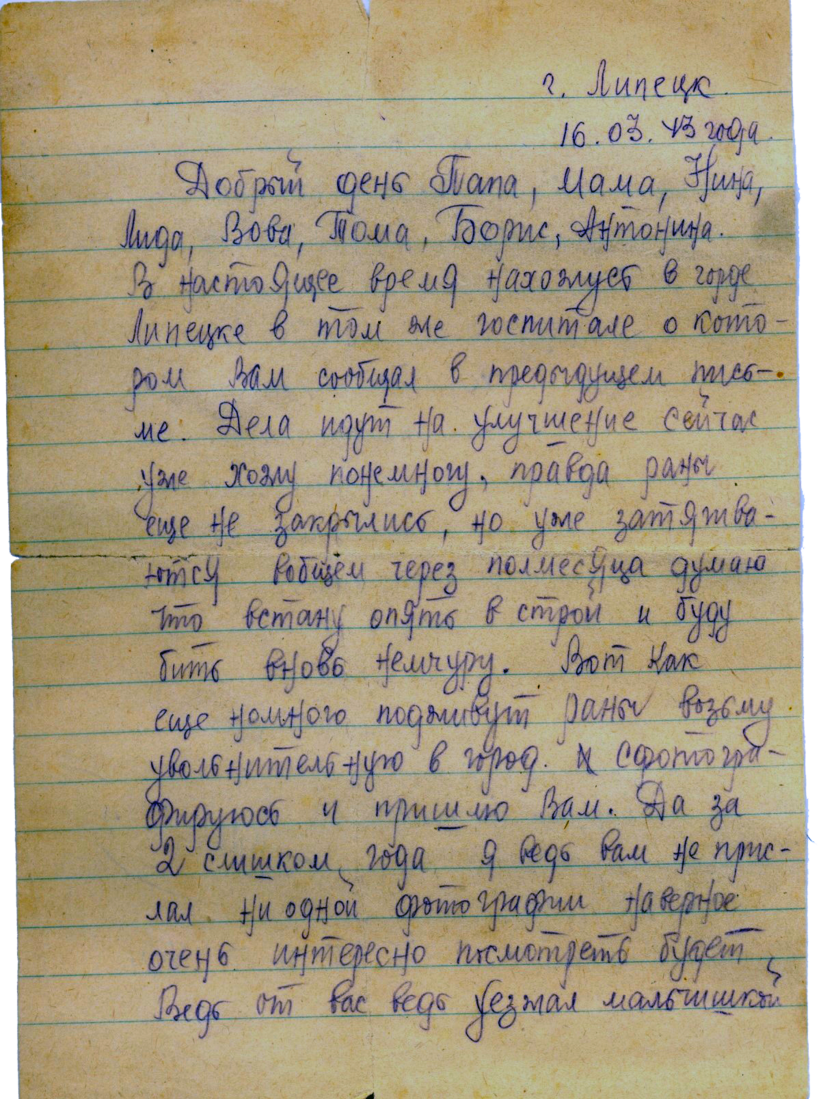 г. Липецк.
16.03.43 года.
Добрый день Папа, Мама, Нина,
Лида, Вова, Тома, Борис, Антонина.
В настоящее время нахожусь в горде
Липецке в том же госпитале о кото-
ром Вам сообщал в предыдущем пись-
ме. Дела идут на улучшение сейчас
уже хожу понемногу, правда раны
еще не закрылись, но уже затягива-
ются вобщем через полмесяца думаю
что встану опять в строй и буду
бить вновь немчуру. Вот как
еще номного подживут раны возьму
увольнительную в город. Сфотогра-
фируюсь и пришлю Вам. Да за
2 слишком года я ведь вам не прис-
лал ни одной фотографии наверное
очень интересно посмотреть будет
Ведь от вас ведь уезжал мальчишкой